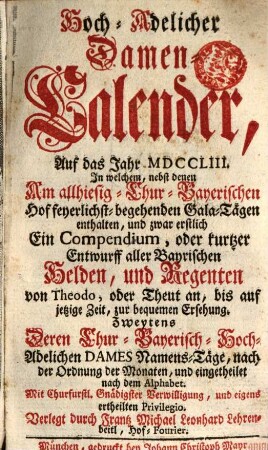 Hoch-Adelicher
Damen-
Calender,
Auf das Jahr MDCCLIII.
In welchem, nebst denen
Am allhiesig-Chur-Bayerischen
Hof feyerlichst-begehenden Gala-Tägen
enthalten, und zwar erstlich
Ein Compendium, oder kurtzer
Entwurff aller Bayrischen
Helden, und Regenten
von Theodo, oder Theut an, bis auf
jetzige Zeit, zur bequemen Ersehung.
Zweytens
Deren Chur-Bayerisch-Hoch-
Adelichen DAMES Namens-Täge, nach
der Ordnung der Monaten, und eingetheilet
nach dem Alphabet.
Mit Churfürstl. Gnädigster Verwilligung, und eigens
ertheilten Privilegio.
Verlegt durch Frantz Michael Leonhard Lehren-
beitl, Hof-Fourier.
München, gedruckt bey Johann Christoph Mayr